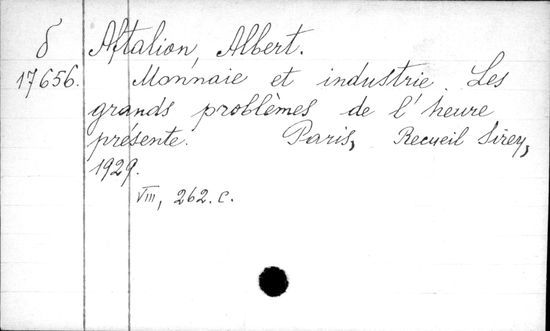 б Aftalion, Albert.
17656. Monnaie et industrie. Les
grands problèmes de l'heure
présente. Paris, Recueil Sirey,
1929.
VIII, 262. c.